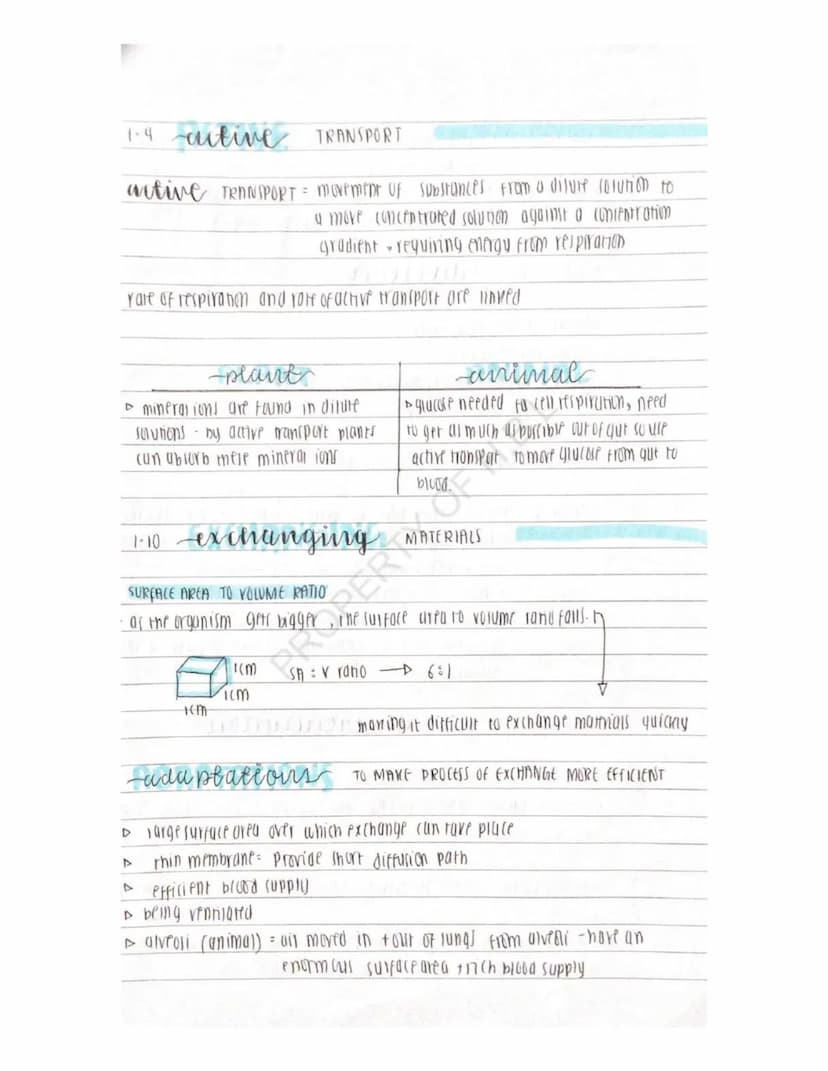 1.9 active TRANSPORT
active TRANSPORT = movement of substances from a dilute solution to
a more concentrated solution against a concentration
gradient - requiring energy from respiration
rate of respiration and rate of active transport are linked
plant
▷ mineral ions are found in dilute
solutions - by active transport plants
can absorb these mineral ions
animal
▷ glucose needed for cell respiration, need
to get as much as possible out of gut so use
active transport to move glucose from gut to
blood.
1.10 exchanging MATERIALS
SURFACE AREA TO VOLUME RATIO
· as the organism gets bigger, the surface area to volume ratio falls.
1cm
1cm
1cm
SA : V ratio → 6:1
making it difficult to exchange materials quickly
adaptations TO MAKE PROCESS OF EXCHANGE MORE EFFICIENT
▷ large surface area over which exchange can take place
▷ thin membrane = provide short diffusion path
▷ efficient blood supply
▷ being ventilated
▷ alveoli (animal) = air moved in + out of lungs from alveoli - have an
enormous surface area + rich blood supply
PROPERTY OF H.B.L